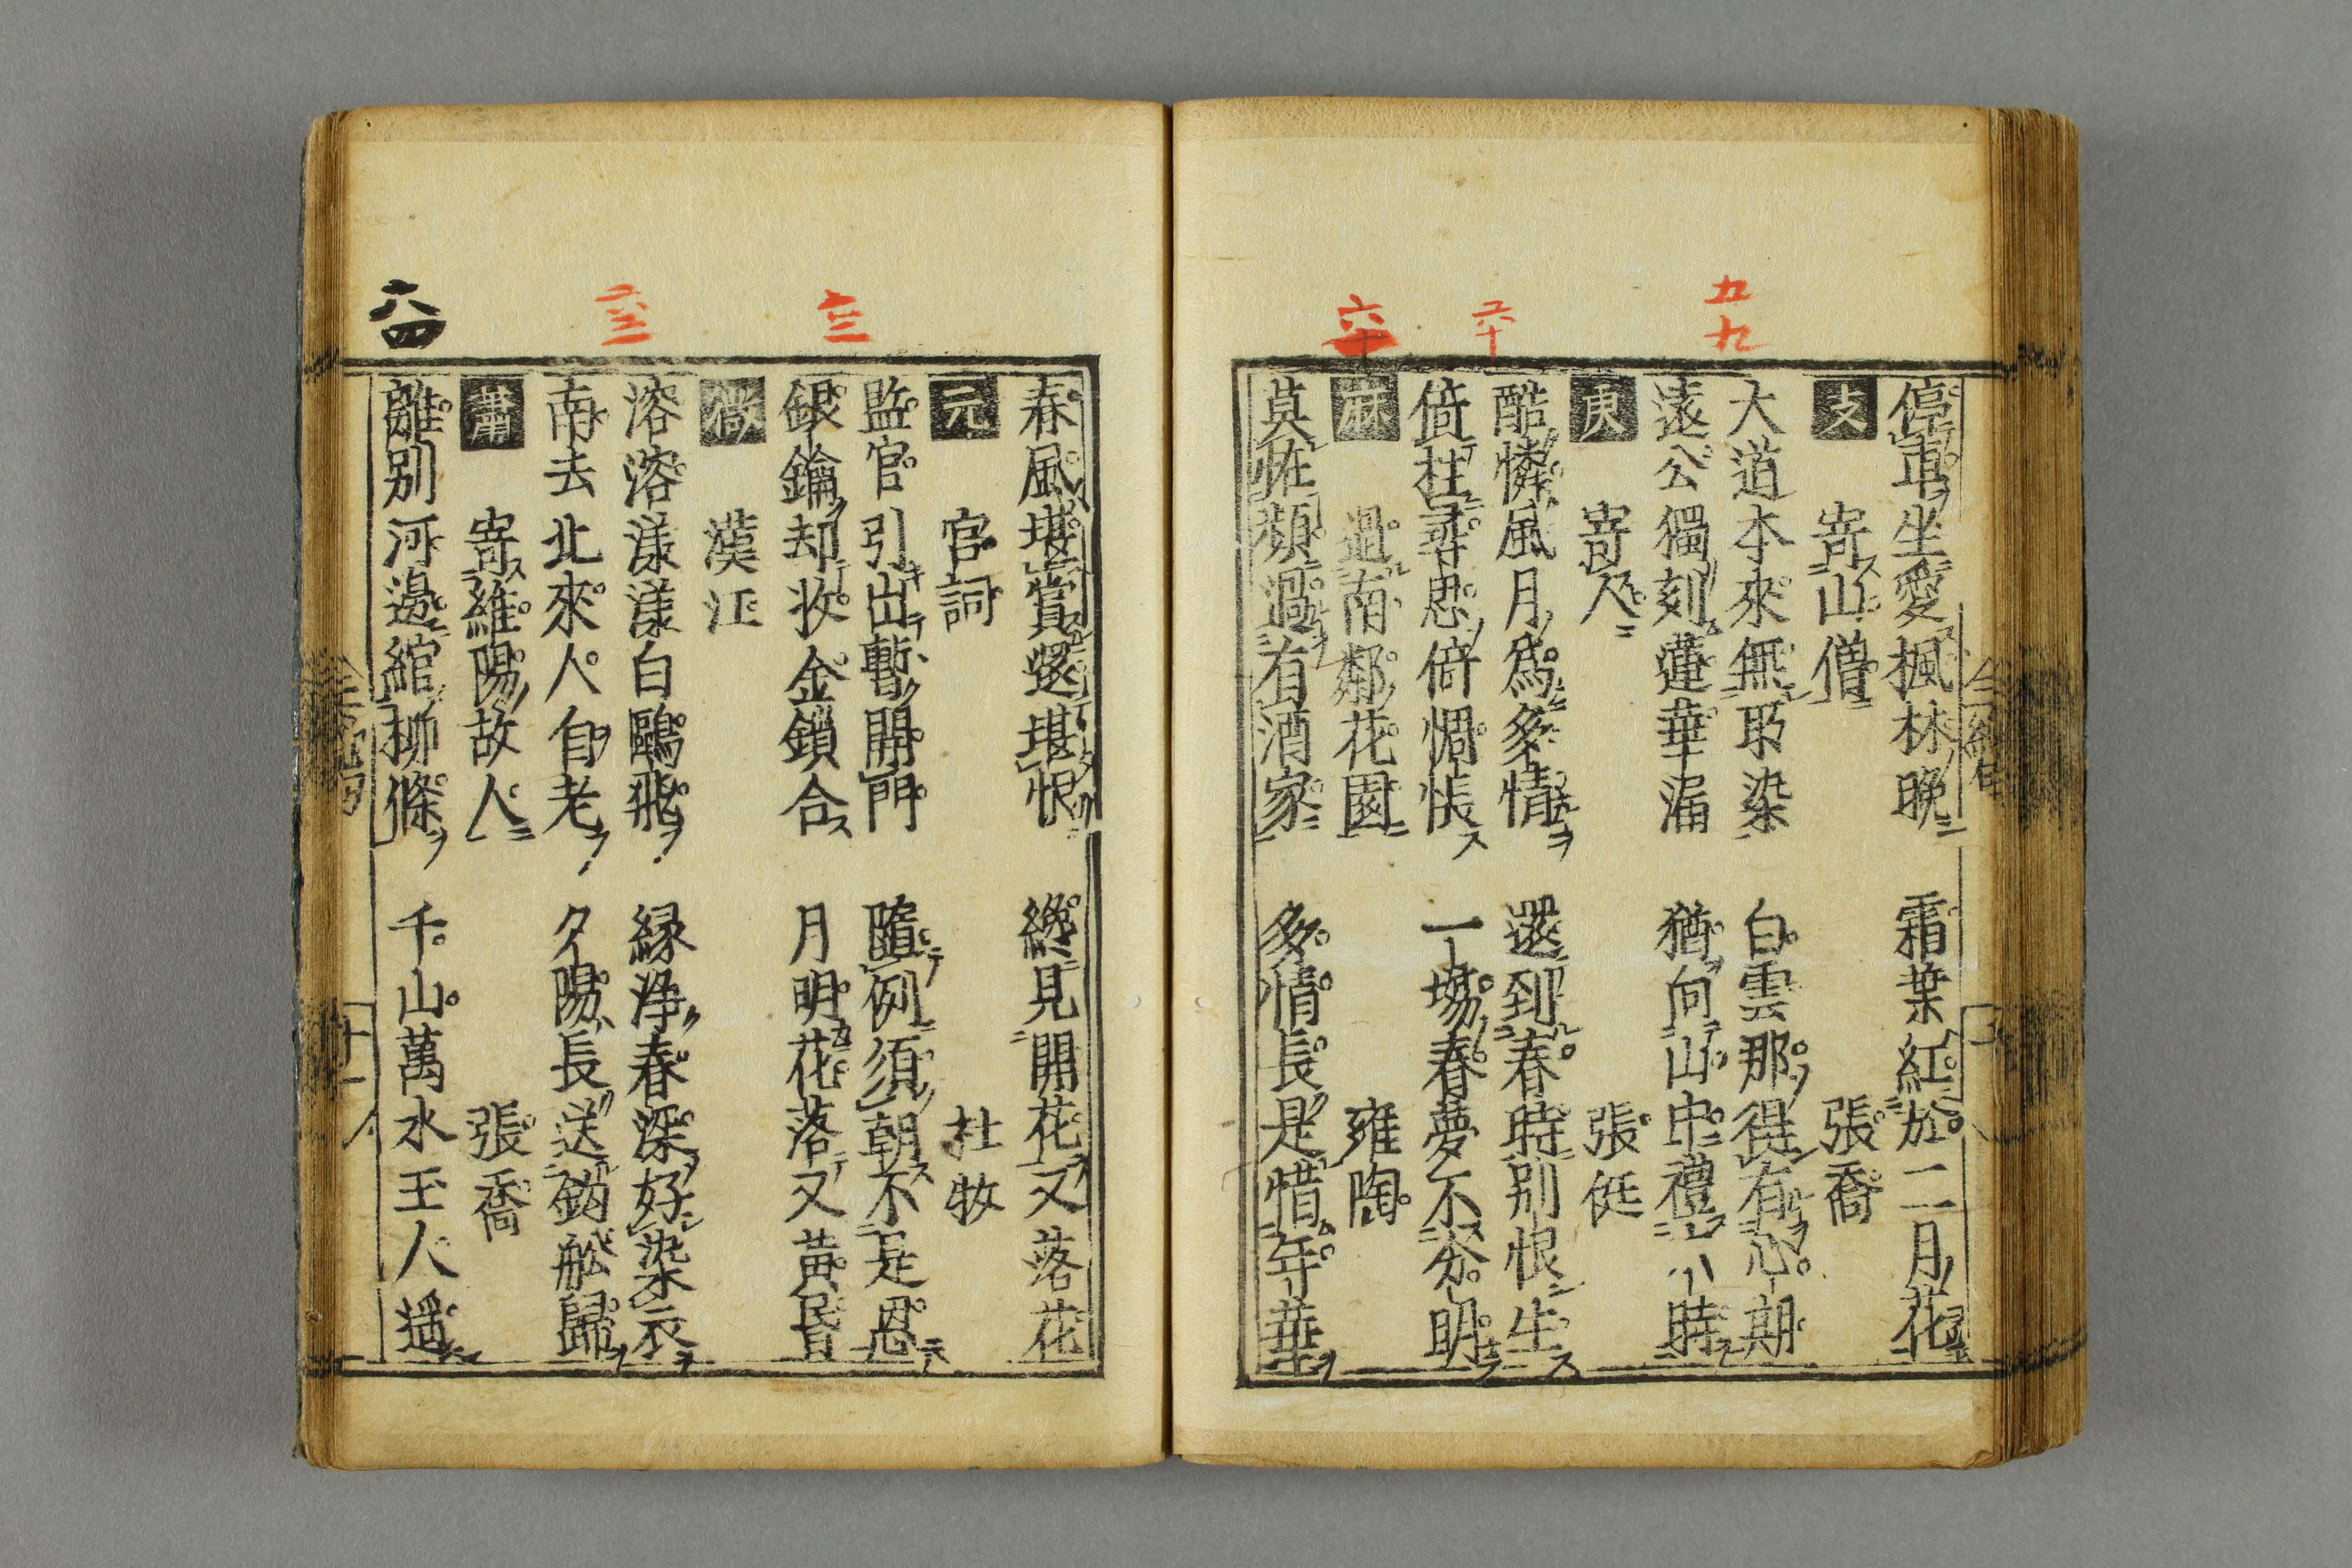 五九
六十
六十
停車坐愛楓林晩 霜葉紅於二月花
支 寄山僧 張喬
大道本來無取染 白雲那得有心期
遠公獨刻蓮華漏 猶向山中禮六時
庚 寄人 張侹
酷憐風月為多情 還到春時別恨生
倚柱尋思倍惆悵 一場春夢不分明
麻 過南鄰花園 雍陶
莫怪頻過有酒家 多情長是惜年華
六三
六四
春風堪賞還堪恨 纔見開花又落花
元 宮詞 杜牧
監官引出暫開門 隨例須朝不是恩
銀鑰却收金鎖合 月明花落又黃昏
微 漢江
溶溶漾漾白鷗飛 緑浄春深好染衣
南去北來人自老 夕陽長送釣船歸
蕭 寄維陽故人 張喬
離別河邊綰柳條 千山萬水玉人遥
十一